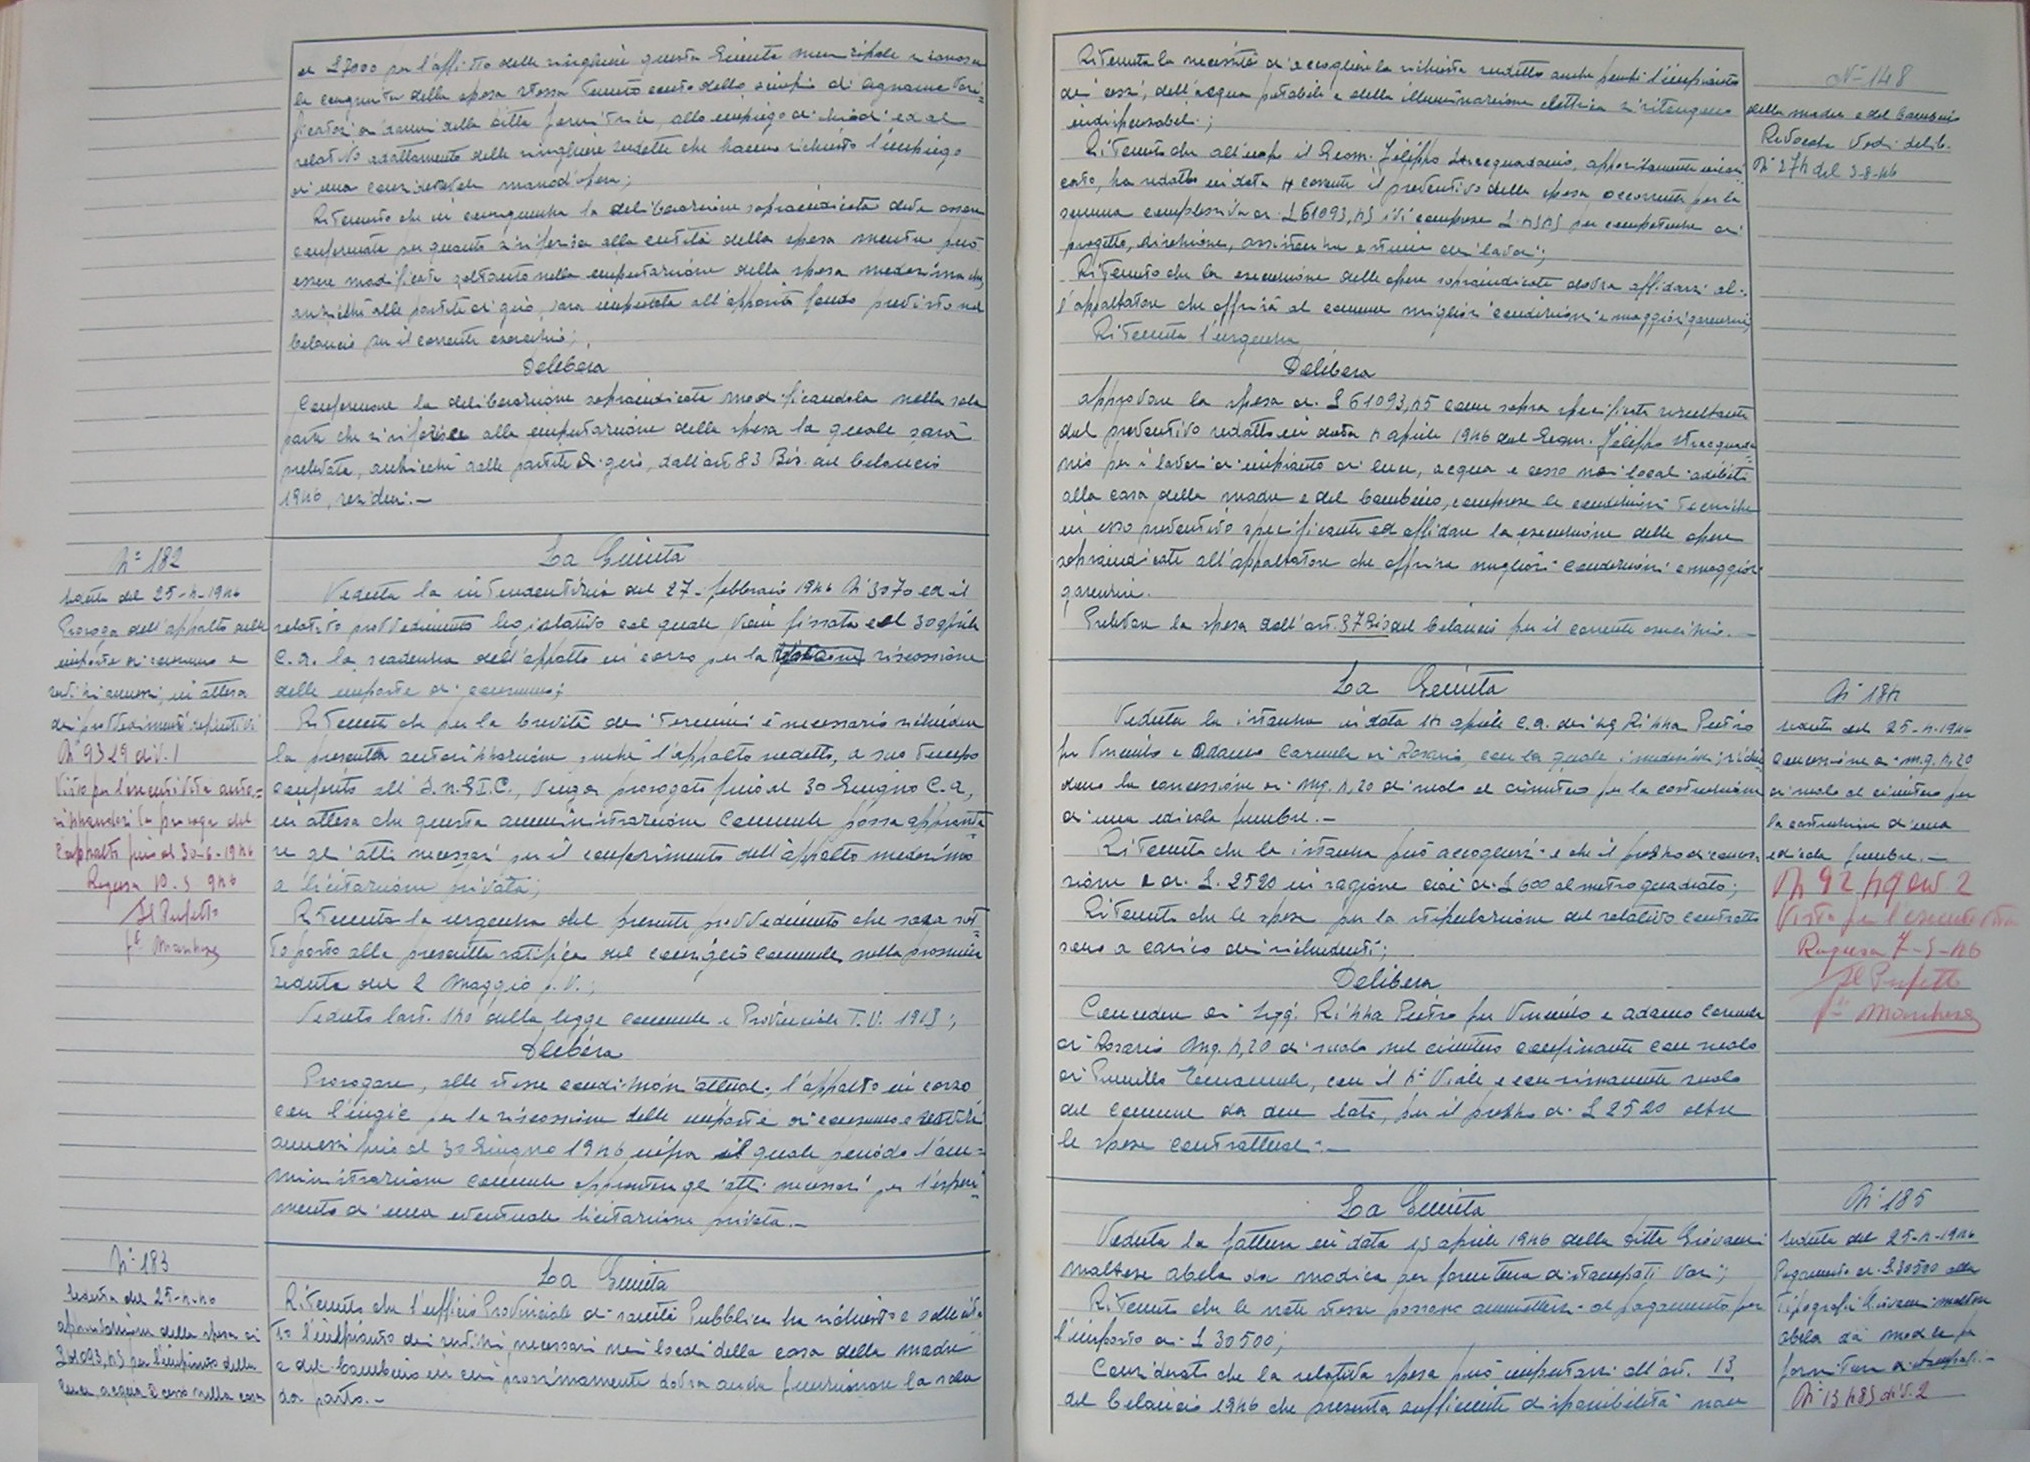 di £ 7000 per l'affitto delle ringhiere questa Giunta municipale riconosce
la congruità della spesa stessa tenuto conto dello scempio di legname
a danni della ditta fornitrice, allo impiego di chiodi ed al
relativo adattamento delle ringhiere suddette che hanno richiesto l'impiego
di una considerevole manod'opera;
Ritenuto che in conseguenza la deliberazione sopraindicata deve essere
confermata per quanto si riferisce alla entità della spesa mentre può
essere modificata soltanto nella imputazione della spesa medesima che
anzicchè alle partite di giro, sarà imputata all'apposito fondo previsto nel
bilancio per il corrente esercizio;
Delibera
Confermare la deliberazione sopraindicata modificandola nella sola
parte che si riferisce alla imputazione della spesa la quale sarà
prelevata, anzicchè dalle partite di giro, dall'art. 83 Bis. del bilancio
1946, residui.-
N° 182
Seduta del 25-4-1946
Proroga dell'appalto delle
imposte di consumo e
servizi annessi, in attesa
dei provvedimenti definitivi
N° 9329 div. 1
Visto per l'esecutività auto-
rizzandosi la proroga del-
l'appalto fino al 30-6-1946
Ragusa 10.5.946
Il Prefetto
La Giunta
Veduta la intendentizia del 27-febbraio 1946 N° 3070 ed il
relativo provvedimento legislativo col quale viene fissata al 30 aprile
c.a. la scadenza dell'appalto in corso per la riscossione
delle imposte di consumo;
Ritenuto che per la brevità dei termini è necessario richiedere
la prescritta autorizzazione perchè l'appalto suddetto, a suo tempo
conferito all'I.N.G.I.C., venga prorogato fino al 30 Giugno c.a,
in attesa che questa amministrazione Comunale possa appronta-
re gli atti necessari per il conferimento dell'appalto medesimo
a licitazione privata;
Ritenuta la urgenza del presente provvedimento che sarà sot-
toposto alla prescritta ratifica del consiglio Comunale nella prossima
seduta del 2 Maggio p.v.;
Veduto l'art. 140 della legge Comunale e Provinciale T.U. 1915;
Delibera
Prorogare, alle stesse condizioni attuali, l'appalto in corso
con l'ingic per la riscossione delle imposte di consumo e servizi
annessi fino al 30 Giugno 1946 entro il quale periodo l'am-
ministrazione Comunale appronterà gli atti necessari per l'esperi-
mento di una eventuale licitazione privata.-
N° 183
Seduta del 25-4-46
Approvazione della spesa di
£ 61093,45 per l'impianto della
luce, acqua e cessi nella casa
La Giunta
Ritenuto che l'ufficio Provinciale di sanità Pubblica ha richiesto e sollecita-
to l'impianto dei servizi necessari nei locali della casa della madre
e del bambino in cui prossimamente dovrà anche funzionare la sala
da parto.-
Ritenuta la necessità di accogliere la richiesta suddetta anche perchè l'impianto
dei cessi, dell'acqua potabile e della illuminazione elettrica si ritengono
indispensabili;
Ritenuto che all'uopo il Geom. Gileppo Stracquadanio, appositamente incari-
cato, ha redatto in data 4 corrente il preventivo della spesa occorrente per la
somma complessiva di £ 61093,45 ivi comprese £. 4545 per competenze di
progetto, direzione, assistenza e studio dei lavori;
Ritenuto che la esecuzione delle opere sopraindicate dovrà affidarsi al-
l'appaltatore che offrirà al comune migliori condizioni e maggiori garanzie;
Ritenuta l'urgenza
Delibera
Approvare la spesa di £ 61093,45 come sopra specificata risultante
dal preventivo redatto in data 4 aprile 1946 dal Geom. Gileppo Stracquada-
nio per i lavori di impianto di luce, acqua e cesso nei locali adibiti
alla casa della madre e del bambino, comprese le condizioni tecniche
in esso preventivo specificate ed affidare la esecuzione delle opere
sopraindicate all'appaltatore che offrirà migliori condizioni e maggiori
garanzie.
Prelevare la spesa dall'art. 37 Bis del bilancio per il corrente esercizio.-
N° 148
della madre e del bambino
Revocata Vedi delib.
N° 274 del 3-8-46
La Giunta
Veduta la istanza in data 14 aprile c.a. dei sigg. Rizza Pietro
fu Vincenzo e Adamo Carmela di Rosario, con la quale i medesimi richie-
dono la concessione di mq. 4,20 di suolo al cimitero per la costruzione
di una edicola funebre.-
Ritenuto che la istanza può accogliersi e che il prezzo di conces-
sione è di £. 2520 in ragione cioè di £ 600 al metro quadrato;
Ritenuto che le spese per la stipulazione del relativo contratto
sono a carico dei richiedenti;
Delibera
Concedere ai Sigg. Rizza Pietro fu Vincenzo e Adamo Carmela
di Rosario mq. 4,20 di suolo nel cimitero confinante con suolo
di Emanuele, con il 4° Viale e con rimanente suolo
del comune da due lati, per il prezzo di £ 2520 oltre
le spese contrattuali.-
N° 184
Seduta del 25-4-1946
Concessione di m.q. 4,20
di suolo al cimitero per
la costruzione d'una
edicola funebre.-
N 9249 div. 2
Visto per l'esecutività
Ragusa 7-5-46
Il Prefetto
La Giunta
Veduta la fattura in data 15 aprile 1946 della ditta Giovanni
Maltese Abela da Modica per fornitura di stampati vari;
Ritenuto che le note stesse possono ammettersi al pagamento per
l'importo di £ 30500;
Considerato che la relativa spesa può imputarsi all'art. 13
del bilancio 1946 che presenta sufficiente disponibilità non
N° 185
Seduta del 25-4-1946
Pagamento di £ 30500 alla
Tipografia Giovanni Maltese
Abela da Modica per
fornitura di stampati.-
N° 13485 div. 2